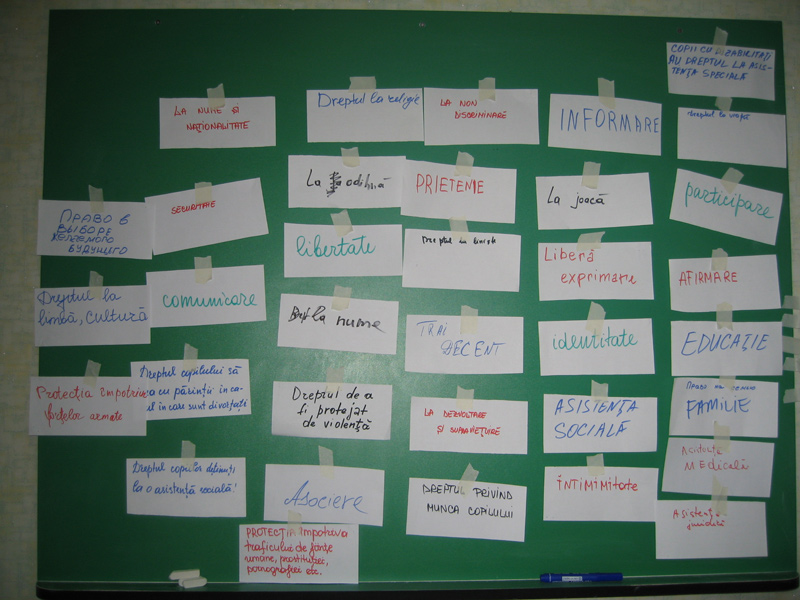 COPII CU DIZABILITĂȚI
AU DREPTUL LA ASIS-
TENȚĂ SPECIALĂ
LA NUME ȘI
NAȚIONALITATE
Dreptul la religie
LA NON
DISCRIMINARE
INFORMARE
Dreptul la viață
La odihnă
PRIETENIE
La joacă
participare
ПРАВО В
ВЫБОРЕ
БУДУЩЕГО
SECURITATE
libertate
Dreptul la liniște
Liberă
exprimare
AFIRMARE
Dreptul la
limbă, cultură
comunicare
la nume
TRAI
DECENT
identitate
EDUCAȚIE
Protecția împotriva
forțelor armate
Dreptul copilului să
părinții în ca-
în care sunt divorțați
Dreptul de a
fi protejat
de violență
LA DEZVOLTARE
ȘI SUPRAVIEȚUIRE
ASISTENȚA
SOCIALĂ
FAMILIE
Dreptul copiilor
la o asistență socială!
Asociere
DREPTUL PRIVIND
MUNCA COPILULUI
ÎNTIMIMITATE
Asistență
MEDICALĂ
Asistență
juridică
PROTECȚIA împotriva
traficului de ființe
umane, prostituției,
pornografiei etc.